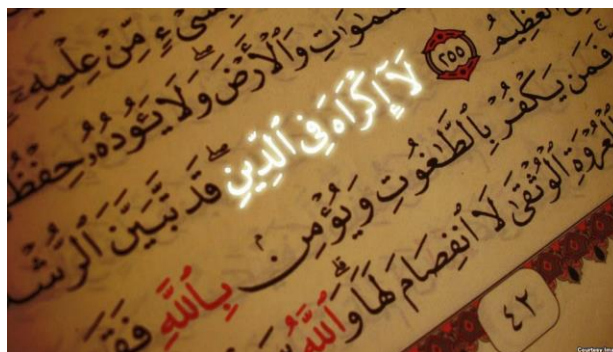 بِشَىْءٍ مِّنْ عِلْمِهِۦٓ
سَّمَٰوَٰتِ وَٱلْأَرْضَ وَلَا يَـُٔودُهُۥ حِفْظُ
ٱلْعَظِيمُ ٢٥٥ لَآ إِكْرَاهَ فِى ٱلدِّينِ ۖ قَد تَّبَيَّنَ ٱلرُّشْ
فَمَن يَكْفُرْ بِٱلطَّٰغُوتِ وَيُؤْمِنۢ بِٱللَّهِ فَقَ
لْعُرْوَةِ ٱلْوُثْقَىٰ لَا ٱنفِصَامَ لَهَا ۗ وَٱللَّهُ
٤٢